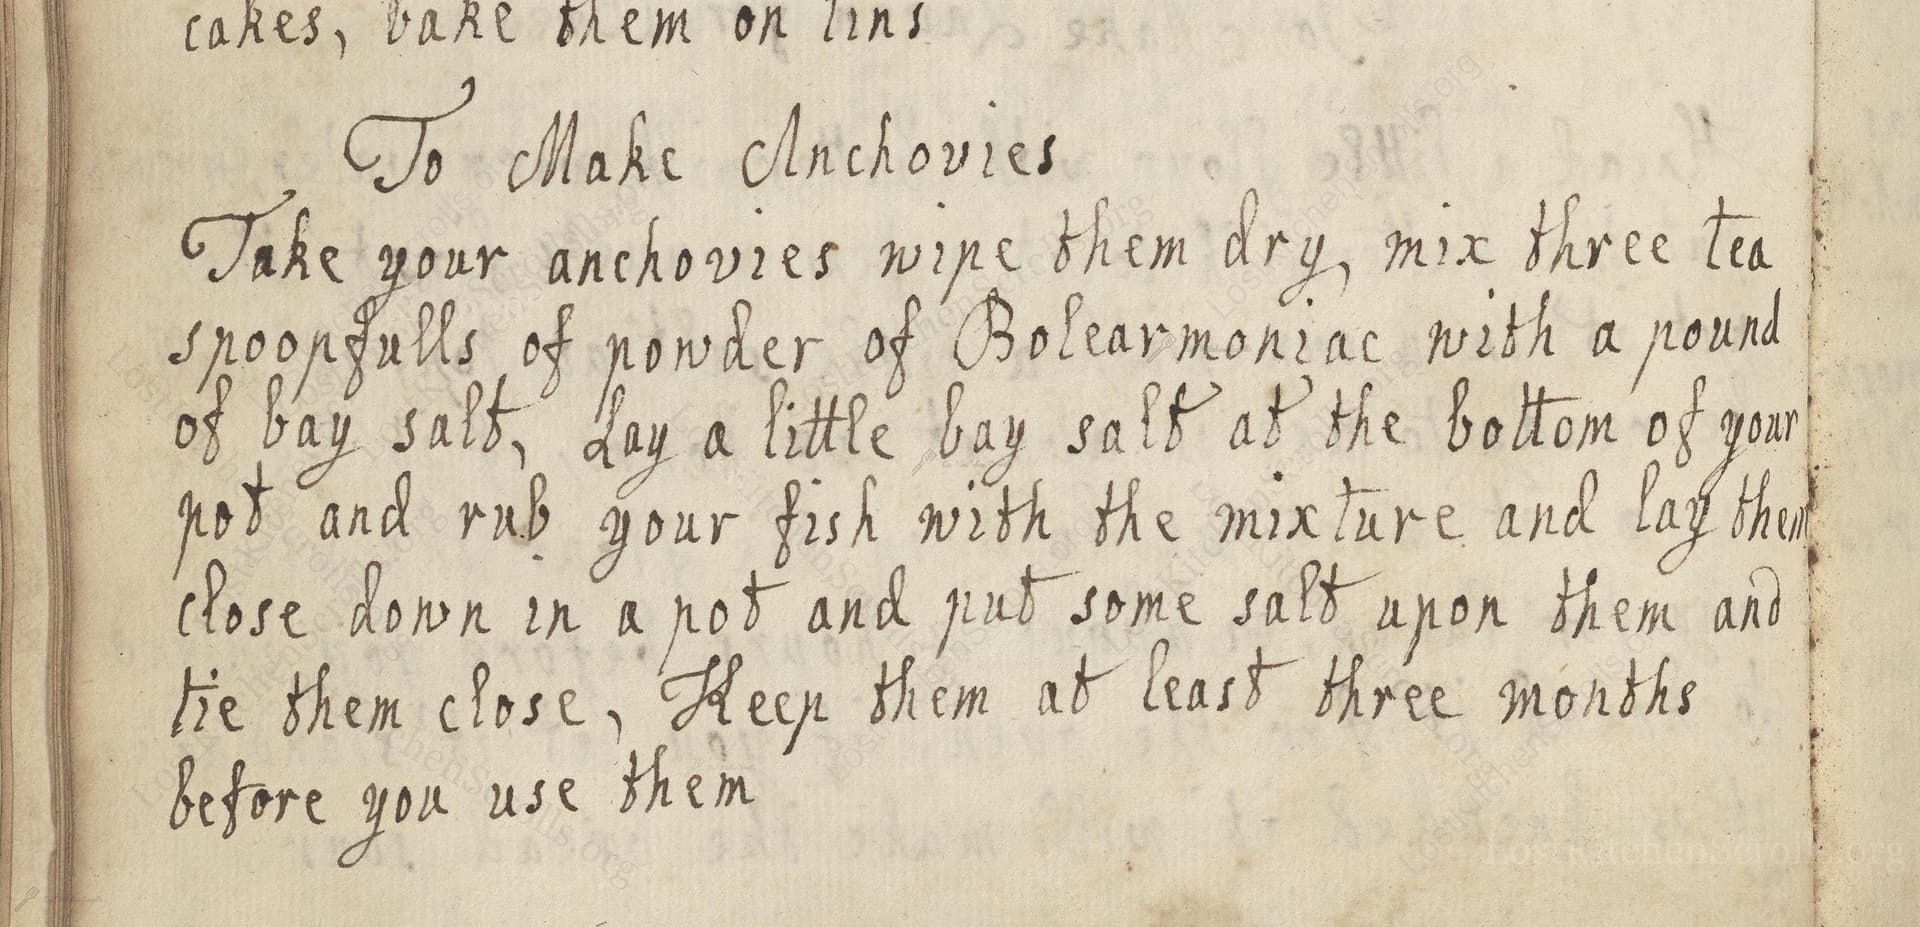 cakes, bake them on tins
To Make Anchovies
Take your anchovies wipe them dry, mix three tea
spoopfulls of powder of Bolearmoniac with a pound
of bay salt, Lay a little bay salt at the bottom of your
pot and rub your fish with the mixture and lay them
close down in a pot and put some salt upon them and
tie them close, Keep them at least three months
before you use them
LostKitchenScrolls.org